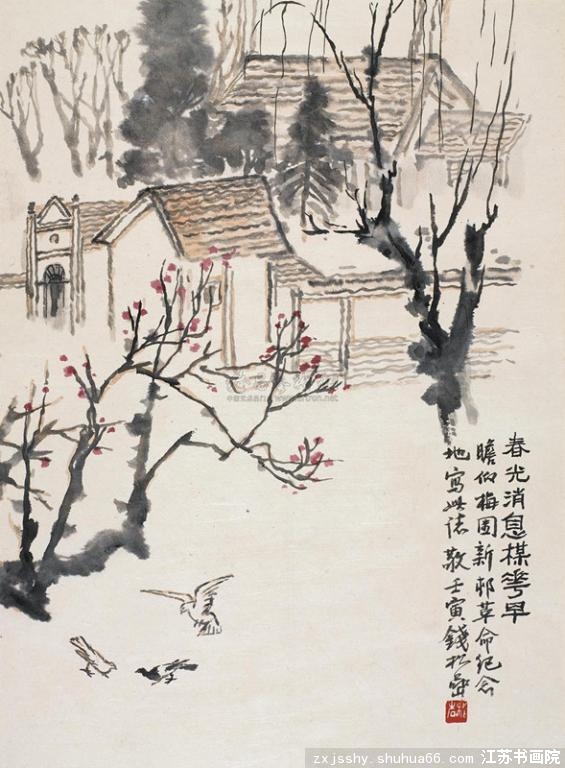 春光消息楳華早
瞻仰梅园新邨革命纪念
地寫此誌敬壬寅錢松嵒
zxjsshy.shuhua66.com 江苏书画院